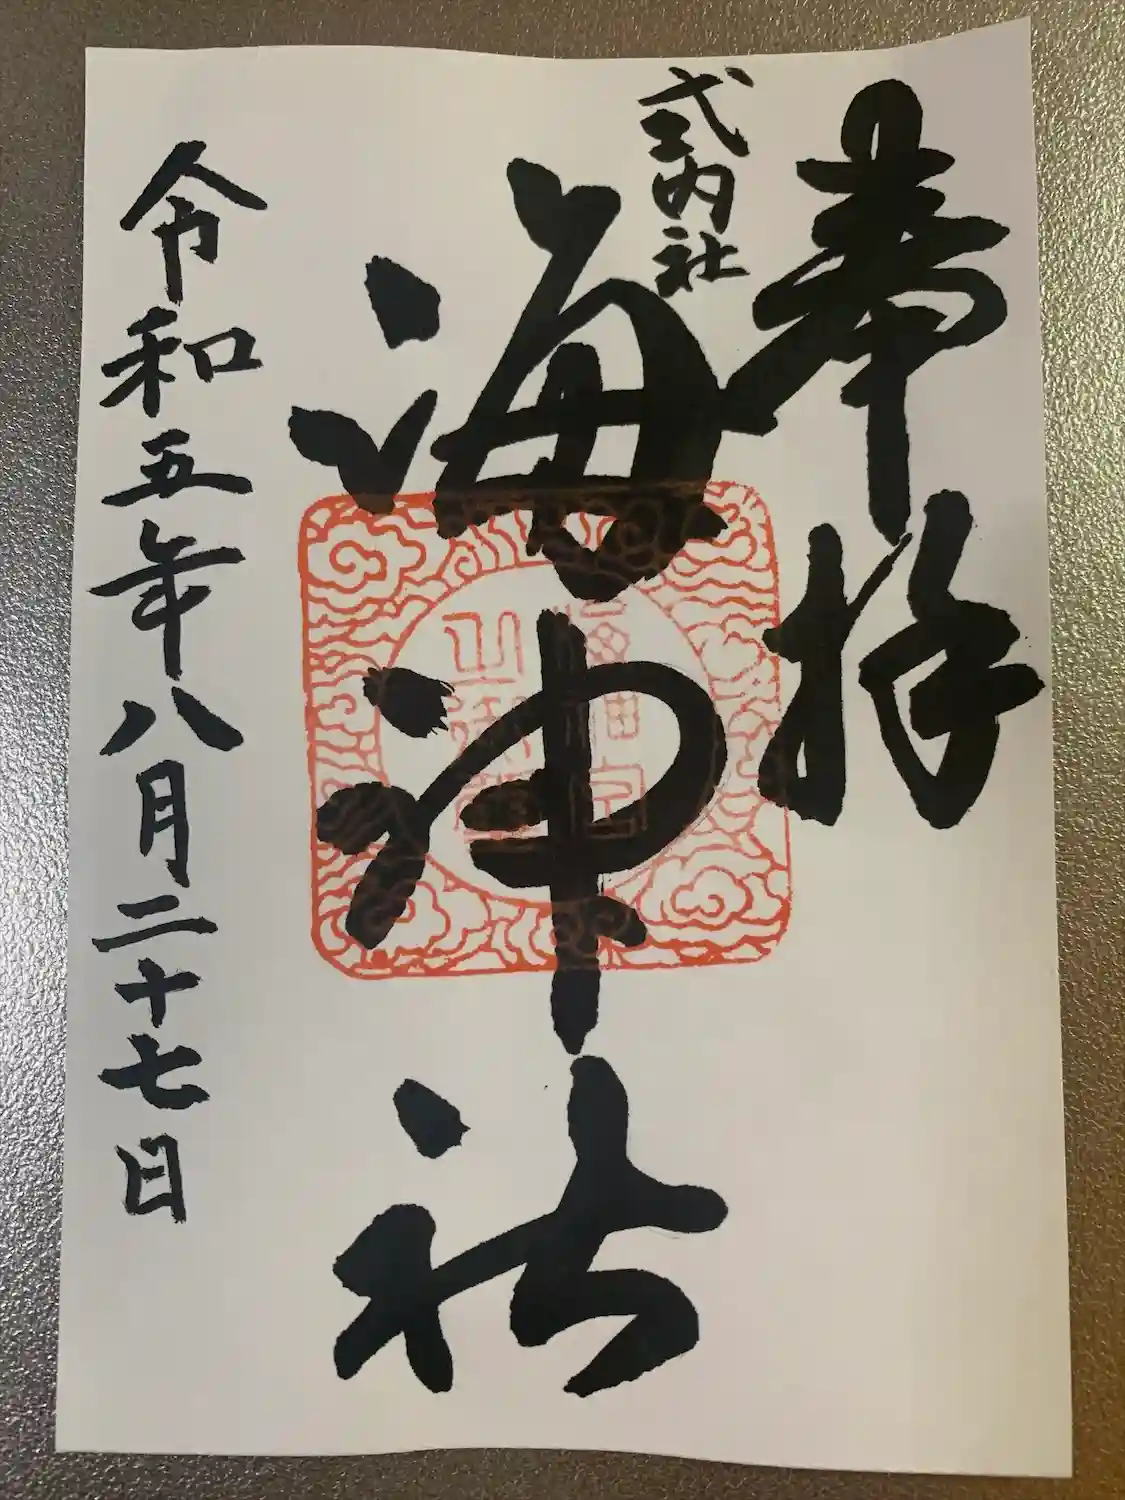 奉拝
式内社
海神社
令和五年八月二十七日